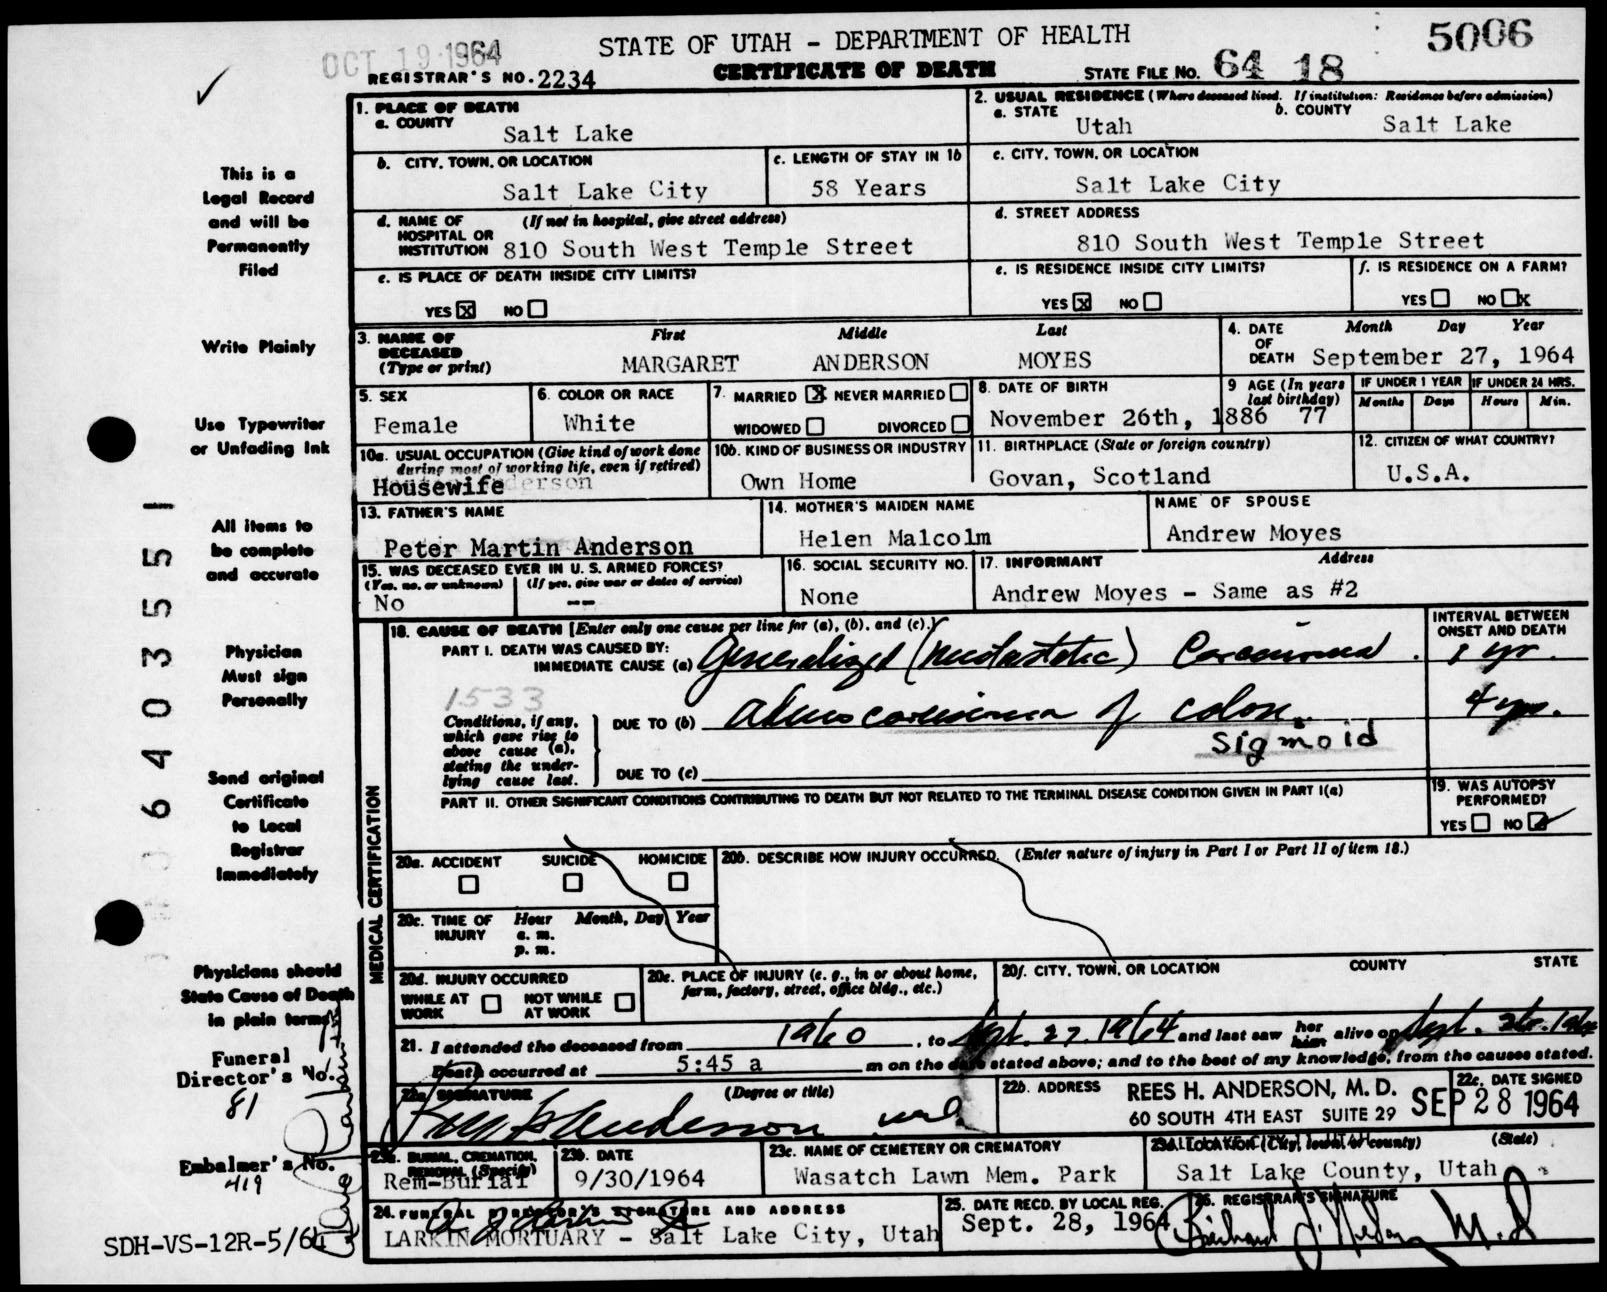 OCT 19 1964
STATE OF UTAH - DEPARTMENT OF HEALTH
5006
REGISTRAR'S NO. 2234
CERTIFICATE OF DEATH
STATE FILE NO. 64 18
1. PLACE OF DEATH
a. COUNTY
Salt Lake
2. USUAL RESIDENCE (Where deceased lived. If institution: Residence before admission)
a. STATE
Utah
b. COUNTY
Salt Lake
b. CITY, TOWN, OR LOCATION
Salt Lake City
c. LENGTH OF STAY IN 1b
58 Years
c. CITY, TOWN, OR LOCATION
Salt Lake City
d. NAME OF HOSPITAL OR INSTITUTION
(If not in hospital, give street address)
810 South West Temple Street
d. STREET ADDRESS
810 South West Temple Street
e. IS PLACE OF DEATH INSIDE CITY LIMITS?
YES X NO
e. IS RESIDENCE INSIDE CITY LIMITS?
YES X NO
f. IS RESIDENCE ON A FARM?
YES NO X
3. NAME OF DECEASED
(Type or print)
First Middle Last
MARGARET ANDERSON MOYES
4. DATE OF DEATH
Month Day Year
September 27, 1964
5. SEX
Female
6. COLOR OR RACE
White
7. MARRIED X NEVER MARRIED
WIDOWED DIVORCED
8. DATE OF BIRTH
November 26th, 1886
9 AGE (In years last birthday)
77
IF UNDER 1 YEAR
Months Days
IF UNDER 24 HRS.
Hours Min.
10a. USUAL OCCUPATION (Give kind of work done during most of working life, even if retired)
Housewife
10b. KIND OF BUSINESS OR INDUSTRY
Own Home
11. BIRTHPLACE (State or foreign country)
Govan, Scotland
12. CITIZEN OF WHAT COUNTRY?
U.S.A.
13. FATHER'S NAME
Peter Martin Anderson
14. MOTHER'S MAIDEN NAME
Helen Malcolm
NAME OF SPOUSE
Andrew Moyes
15. WAS DECEASED EVER IN U. S. ARMED FORCES?
(Yes, no, or unknown) (If yes, give war or dates of service)
No --
16. SOCIAL SECURITY NO.
None
17. INFORMANT Address
Andrew Moyes - Same as #2
MEDICAL CERTIFICATION
18. CAUSE OF DEATH [Enter only one cause per line for (a), (b), and (c).]
INTERVAL BETWEEN ONSET AND DEATH
PART I. DEATH WAS CAUSED BY:
IMMEDIATE CAUSE (a) Generalized (metastatic) Carcinoma. 1 yr.
1533
Conditions, if any, which gave rise to above cause (a), stating the underlying cause last.
DUE TO (b) adenocarcinoma of colon. 4 yrs.
sigmoid
DUE TO (c)
PART II. OTHER SIGNIFICANT CONDITIONS CONTRIBUTING TO DEATH BUT NOT RELATED TO THE TERMINAL DISEASE CONDITION GIVEN IN PART I(a)
19. WAS AUTOPSY PERFORMED?
YES NO ✓
20a. ACCIDENT SUICIDE HOMICIDE
20b. DESCRIBE HOW INJURY OCCURRED. (Enter nature of injury in Part I or Part II of item 18.)
20c. TIME OF INJURY
Hour Month, Day, Year
a. m.
p. m.
20d. INJURY OCCURRED
WHILE AT WORK NOT WHILE AT WORK
20e. PLACE OF INJURY (e. g., in or about home, farm, factory, street, office bldg., etc.)
20f. CITY, TOWN, OR LOCATION COUNTY STATE
21. I attended the deceased from 1960, to Sept. 27, 1964 and last saw her him alive on Sept.
Death occurred at 5:45 a m on the date stated above; and to the best of my knowledge, from the causes stated.
22a. SIGNATURE (Degree or title)
Rees H. Anderson M.D.
22b. ADDRESS
REES H. ANDERSON, M. D.
60 SOUTH 4TH EAST SUITE 29
22c. DATE SIGNED
SEP 28 1964
23a. BURIAL, CREMATION, REMOVAL (Specify)
Rem-Burial
23b. DATE
9/30/1964
23c. NAME OF CEMETERY OR CREMATORY
Wasatch Lawn Mem. Park
23d. LOCATION (City, town, or county) (State)
Salt Lake County, Utah
24. FUNERAL DIRECTOR'S SIGNATURE AND ADDRESS
LARKIN MORTUARY - Salt Lake City, Utah
25. DATE RECD. BY LOCAL REG.
Sept. 28, 1964
26. REGISTRAR'S SIGNATURE
M.D
This is a
Legal Record
and will be
Permanently
Filed
Write Plainly
Use Typewriter
or Unfading Ink
All items to
be complete
and accurate
Physician
Must sign
Personally
Send original
Certificate
to Local
Registrar
Immediately
Physicians should
State Cause of Death
in plain terms
Funeral
Director's No.
81
Embalmer's No.
419
SDH-VS-12R-5/64
6403551